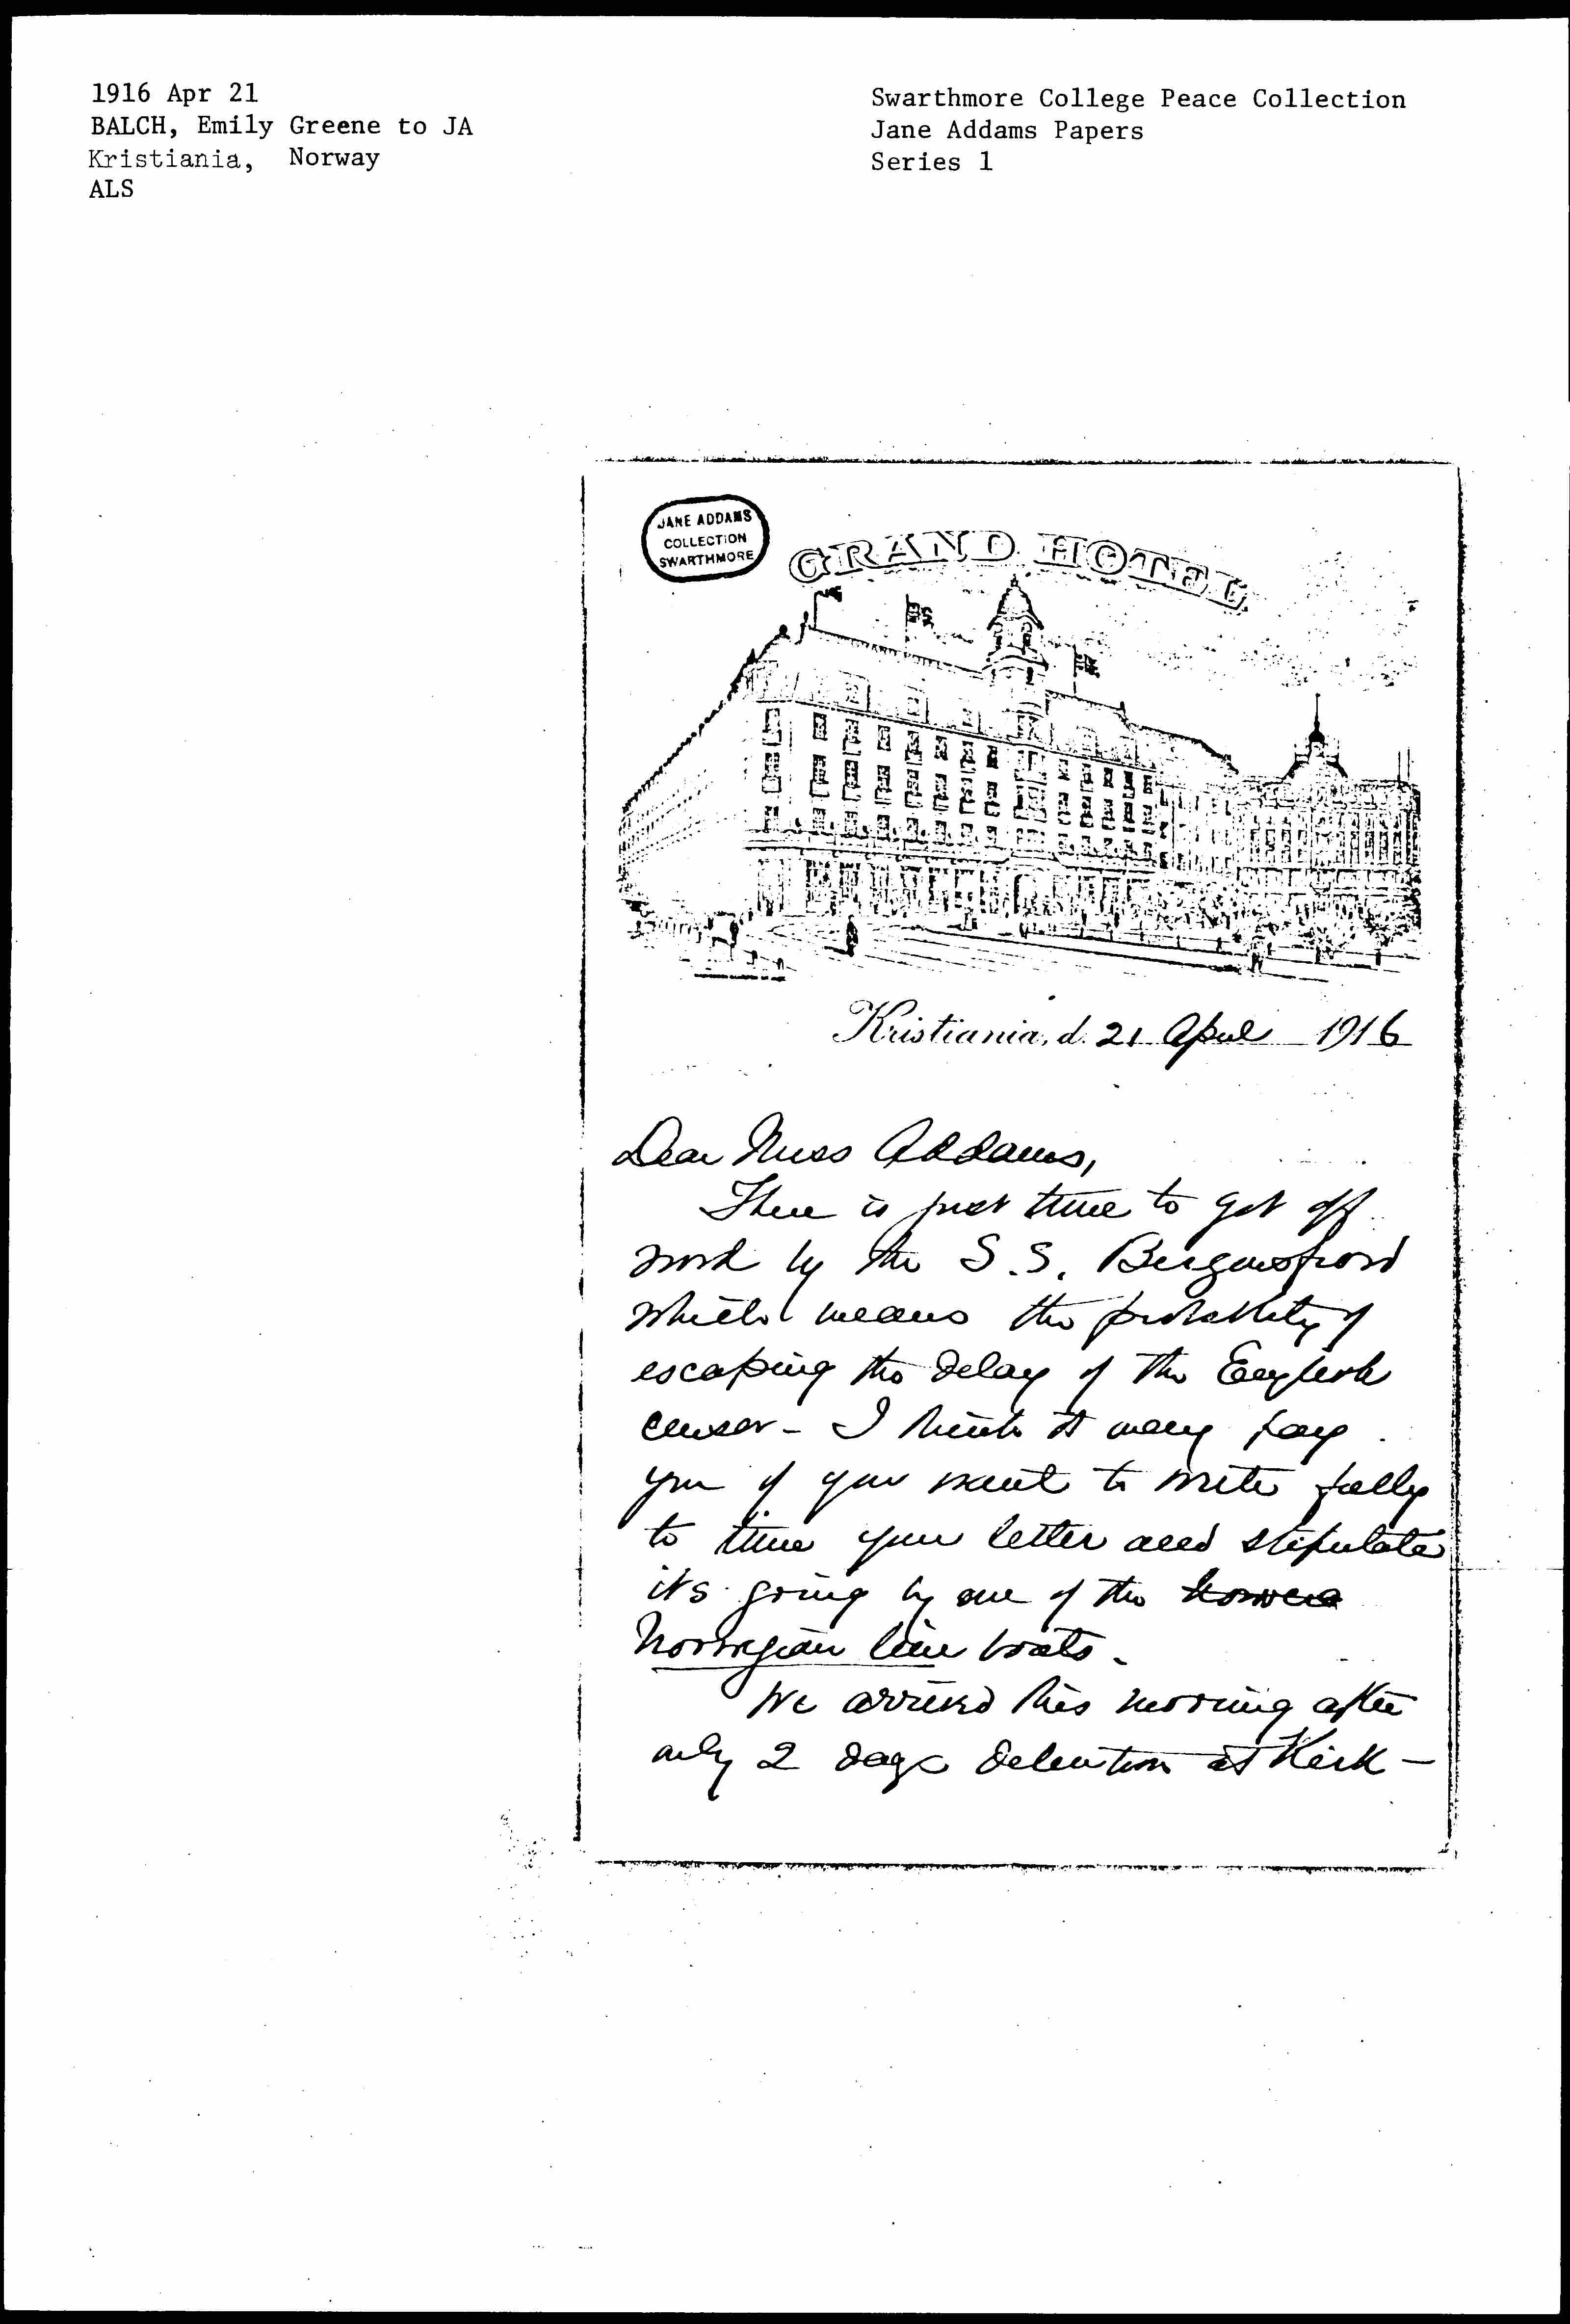 1916 Apr 21
BALCH, Emily Greene to JA
Kristiania, Norway
ALS
Swarthmore College Peace Collection
Jane Addams Papers
Series 1
JANE ADDAMS
COLLECTION
SWARTHMORE
GRAND HOTEL
GRAND HOTEL
Kristiania, d. 21 April 1916
Dear Miss Addams,
There is just time to get off
word by the S.S. Bergensfjord
which means the probability of
escaping the delay of the English
censor - I think it may pay
you if you want to write fully
to time your letter and stipulate
its going by one of the
Norwegian line boats.
We arrived this morning after
only 2 days detention at Kirk-